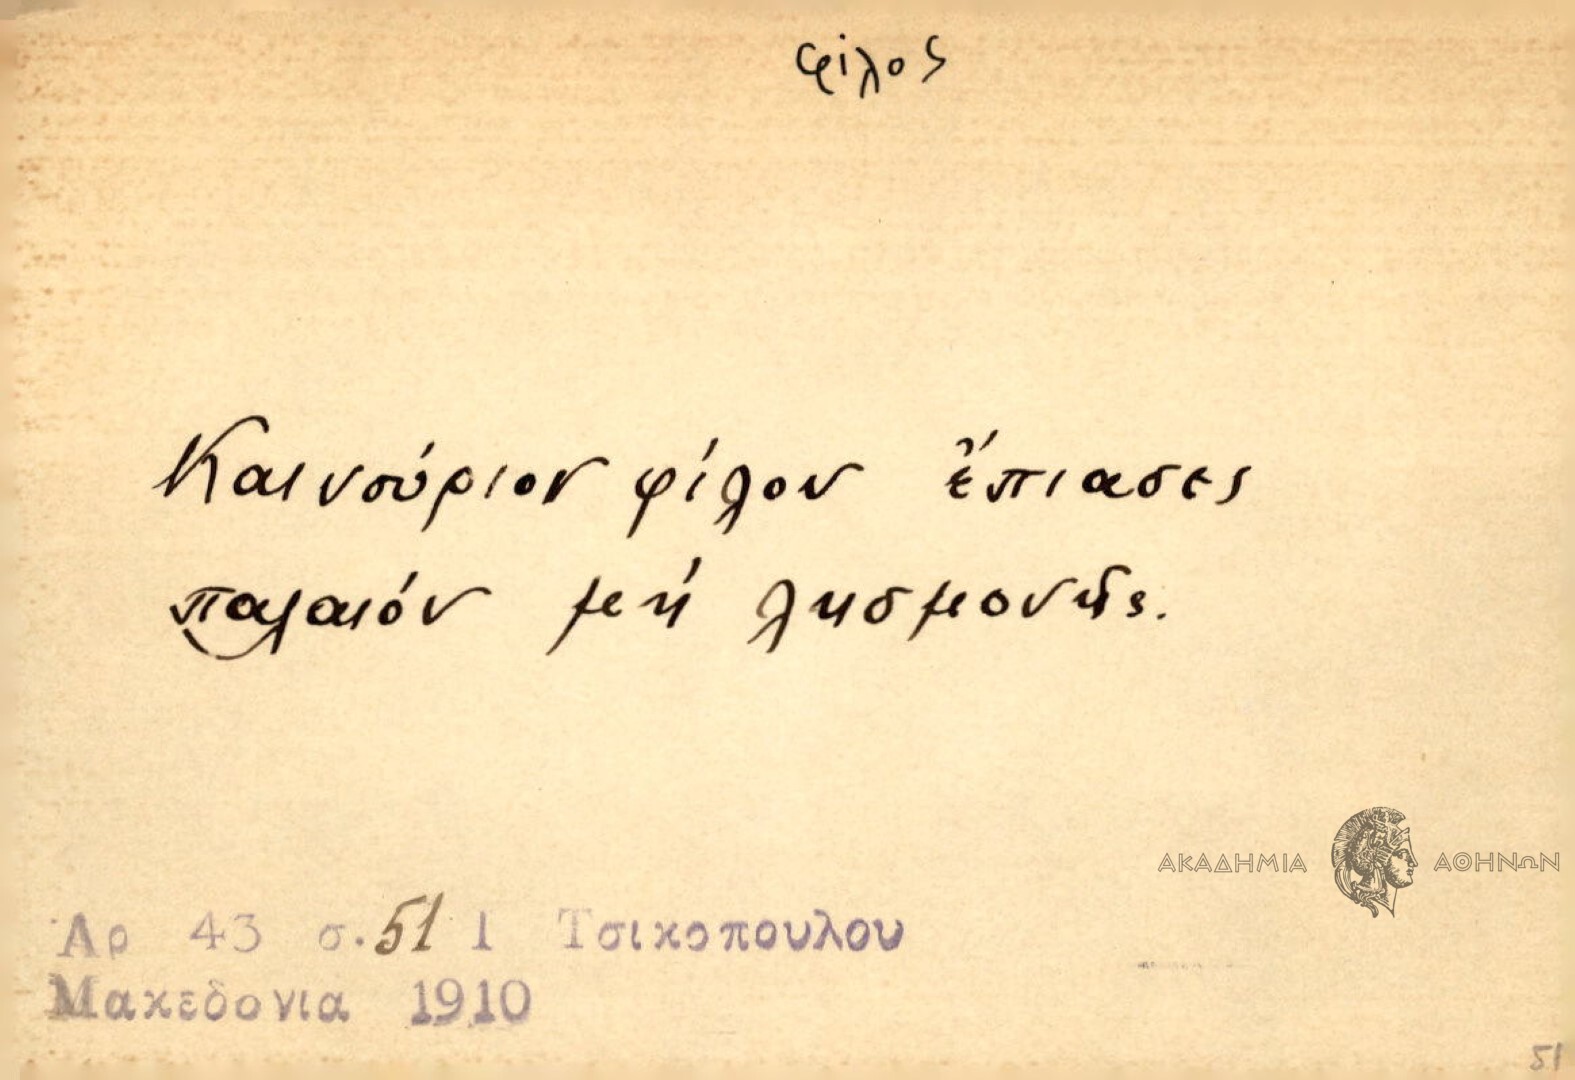 φίλος
Καινούριον φίλον ἔπιασες
παλαιόν μή λησμονῇς.
ΑΚΑΔΗΜΙΑ ΑΘΗΝΩΝ
Αρ 43 σ. 51 Ι Τσικοπουλου
Μακεδονια 1910
51